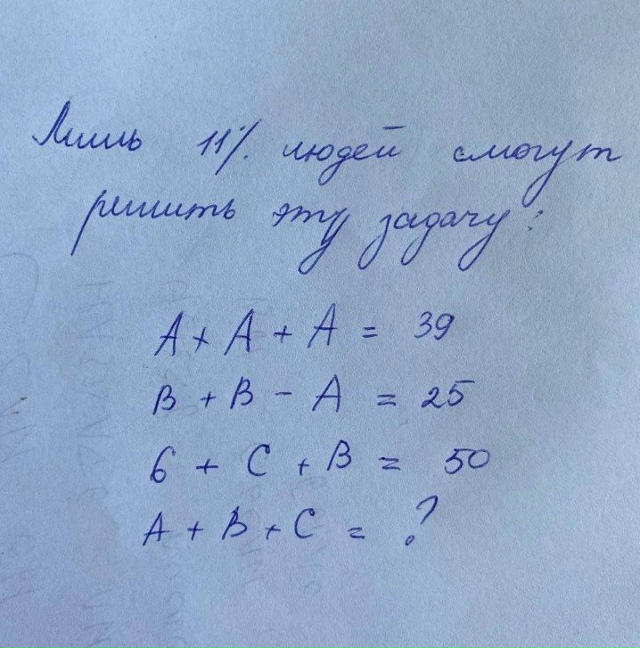 Лишь 11% людей смогут
решить эту задачу:
A + A + A = 39
B + B - A = 25
6 + C + B = 50
A + B + C = ?